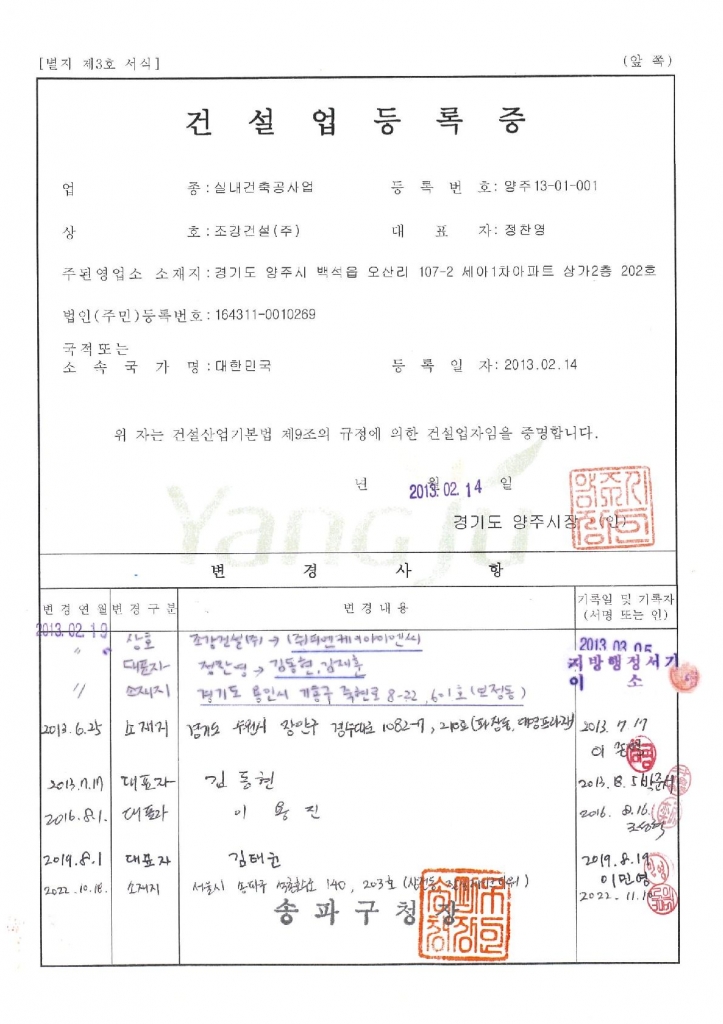 [별지 제3호 서식] (앞 쪽)
건 설 업 등 록 증
업 종 : 실내건축공사업 등 록 번 호 : 양주13-01-001
상 호 : 조강건설(주) 대 표 자 : 정찬영
주된영업소 소재지 : 경기도 양주시 백석읍 오산리 107-2 세아1차아파트 상가2층 202호
법인(주민)등록번호 : 164311-0010269
국적또는
소 속 국 가 명 : 대한민국 등 록 일 자 : 2013.02.14
위 자는 건설산업기본법 제9조의 규정에 의한 건설업자임을 증명합니다.
년 월 일
2013.02.14
경기도 양주시장 (인)
Yangju
변 경 사 항
변경연월 변경구분 변 경 내 용 기록일 및 기록자
(서명 또는 인)
2013.02.19 상호 조강건설(주) → (주)피엔케이아이엔씨 2013 03.05
〃 대표자 정찬영 → 김동현, 김재훈 지방행정서기
〃 소재지 경기도 용인시 기흥구 죽현로 8-22, 601호 (보정동) 이 소
2013.6.25 소재지 경기도 수원시 장안구 경수대로 1082-7, 210호 2013.7.17
2013.7.17 대표자 김동현 2013.8.5
2016.8.1. 대표자 이용진 2016.8.16.
2019.8.1 대표자 김태균 2019.8.19
이민영
2022.10.18. 소재지 서울시 송파구 석촌호수로 140, 203호 2022.11.10
송파구청장